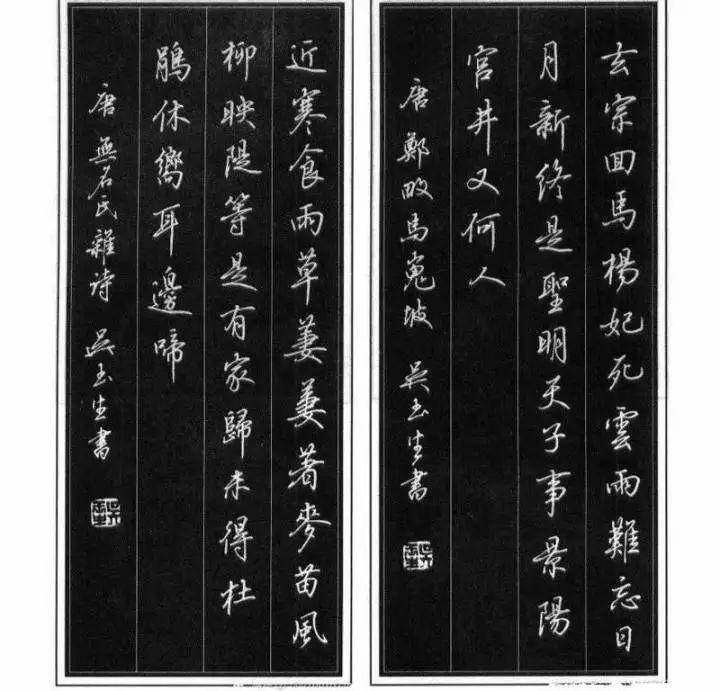 玄宗回馬楊妃死雲雨難忘日
月新終是聖明天子事景陽
宫井又何人
唐鄭畋馬嵬坡 吳玉生書
近寒食雨草萋萋著麥苗風
柳映隄等是有家歸未得杜
鵑休嚮耳邊啼
唐無名氏雜诗 吳玉生書